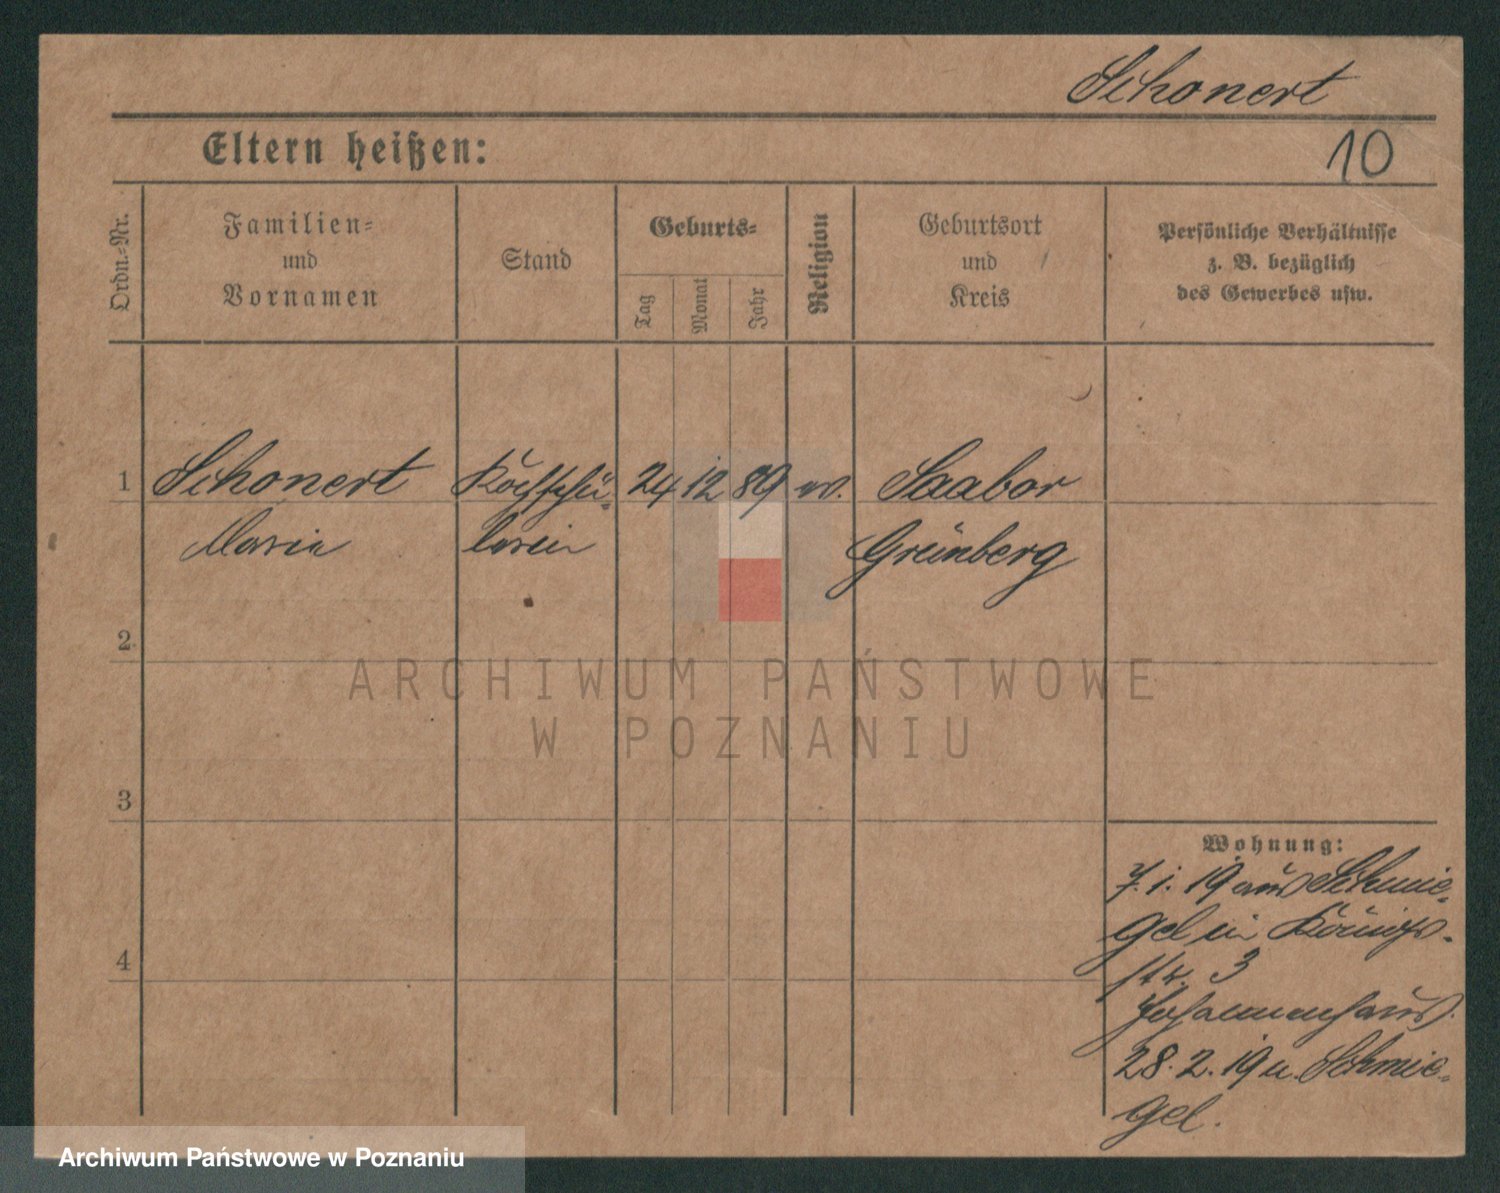 Schonert
Eltern heißen:
10
Ordn.-Nr.
Familien-
und
Vornamen
Stand
Geburts-
Tag
Monat
Jahr
Religion
Geburtsort
und
Kreis
Persönliche Verhältnisse
z. B. bezüglich
des Gewerbes usw.
1
Schonert
Kochschü-
24
12
89
ev.
Saabor
Maria
lerin
Grünberg
2
ARCHIWUM PAŃSTWOWE
W POZNANIU
3
Wohnung:
7. 1. 19 aus Schmie-
gel in Königs-
str. 3
Johannenhaus.
4
28. 2. 19 n. Schmie-
gel.
Archiwum Państwowe w Poznaniu